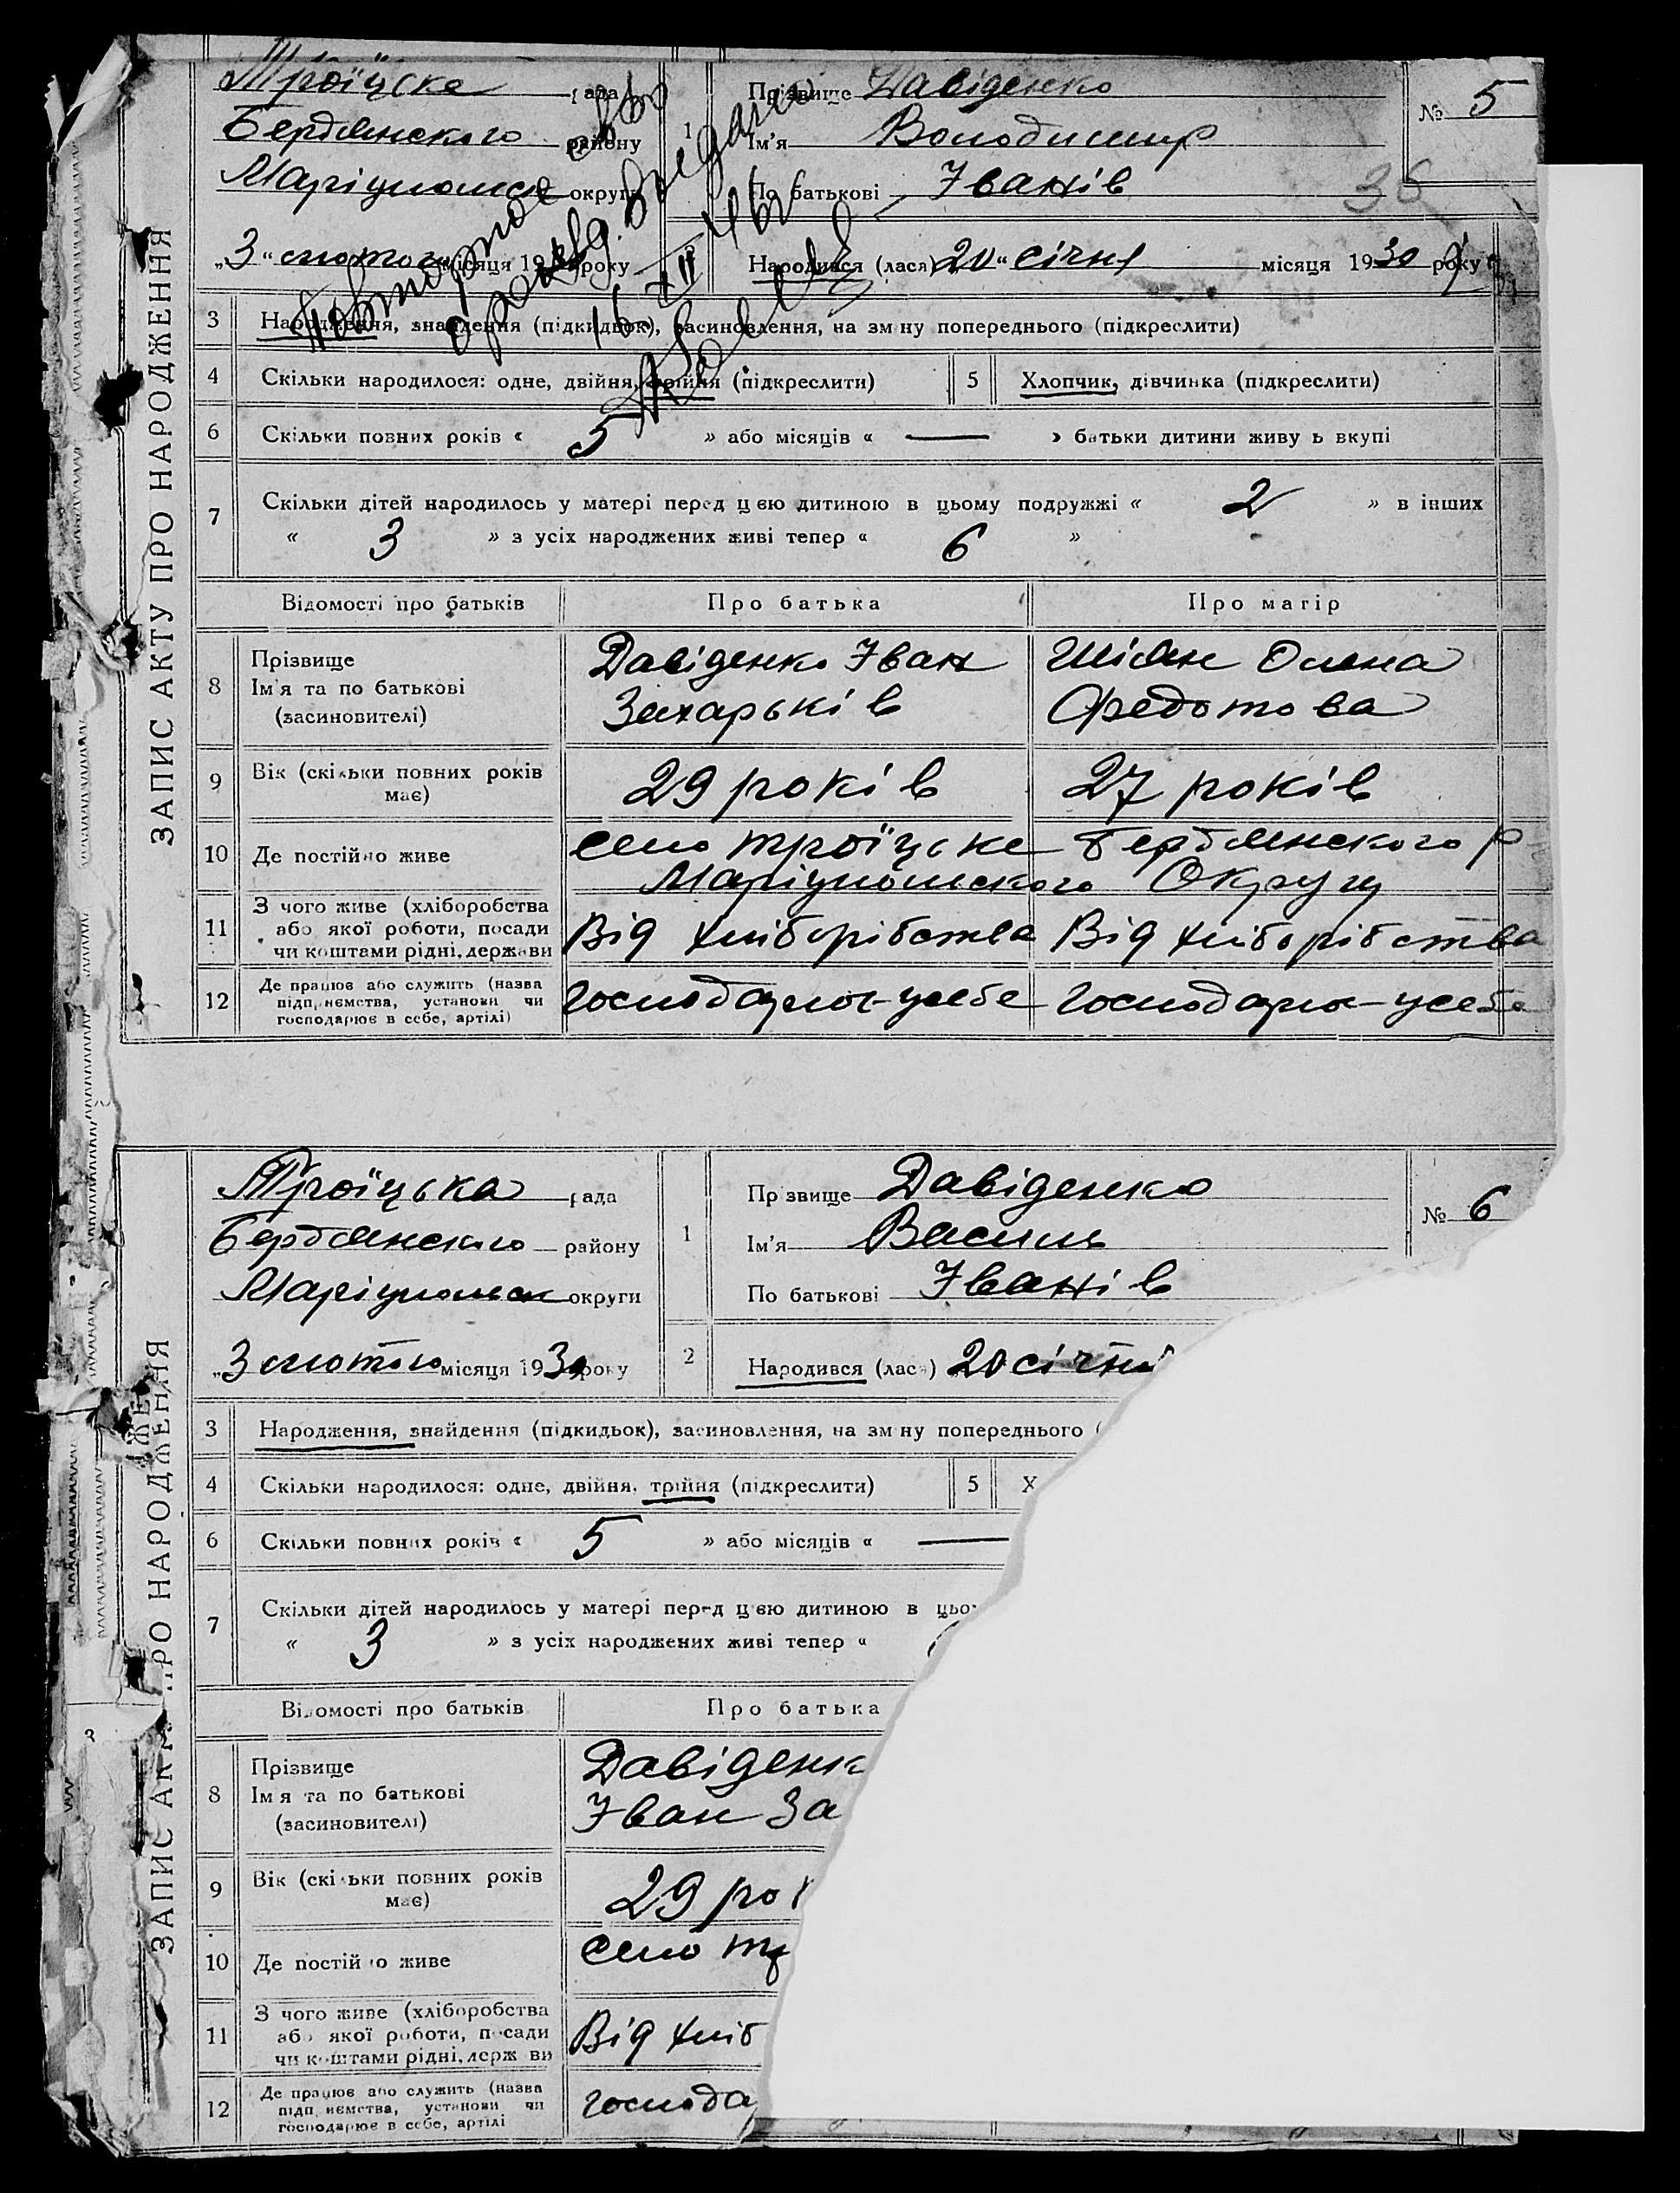 ЗАПИС АКТУ ПРО НАРОДЖЕННЯ
Троїцске рада
Бердянского району
Маріупольск округи
„3“ лютого місяця 1930 року
1
Прізвище Давіденко
Ім'я Володимир
По батькові Іванів
№ 5
36
Народився (лася) 20 “ січня місяця 1930 року
Повторное св-во
о рожд. выдано
16/XII 46 г.
3 Народження, знайдення (підкидьок), засиновлення, на зміну попереднього (підкреслити)
4 Скільки народилося: одне, двійня, трійня (підкреслити)
5 Хлопчик, дівчинка (підкреслити)
6 Скільки повних років « 5 » або місяців « — » батьки дитини живу ь вкупі
7 Скільки дітей народилось у матері перед цією дитиною в цьому подружжі « 2 » в інших
« 3 » з усіх народжених живі тепер « 6 »
Відомості про батьків Про батька Про матір
8 Прізвище
Ім'я та по батькові
(засиновителі)
Давіденко Іван
Захарьків
Шіян Олена
Федотова
9 Вік (скільки повних років
має)
29 років 27 років
10 Де постійно живе
село троїцске Бердянского р
Маріупольского Округу
11 З чого живе (хліборобства
або якої роботи, посади
чи коштами рідні, держави
Від хліборібства Від хліборібства
12 Де працює або служить (назва
підприємства, установи чи
господарює в себе, артілі)
Господарює-усебе Господарює-усебе
ЗАПИС АК ПРО НАРОДЖЕННЯ
Троїцька рада
Бердянского району
Маріупольск округи
„3 лютого місяця 1930 року
1
Пр звище Давіденко
Ім'я Василь
По батькові Іванів
№ 6
2 Народився (лася) 20 січня
3 Народження, знайдення (підкидьок), засиновлення, на зміну попереднього (
4 Скільки народилося: одне, двійня, трійня (підкреслити)
5 Х
6 Скільки повних років « 5 » або місяців « —
7 Скільки дітей народилось у матері перед цією дитиною в цьо
« 3 » з усіх народжених живі тепер «
Відомості про батьків Про батька
8 Прізвище
Ім'я та по батькові
(засиновителі)
Давіденк
Іван За
9 Вік (скільки повних років
має)
29 рок
10 Де постійно живе
село тр
11 З чого живе (хліборобства
або якої роботи, посади
чи коштами рідні, держ ви
Від хліб
12 Де працює або служить (назва
підп иємства, установи чи
господарює в себе, артілі
господа
3